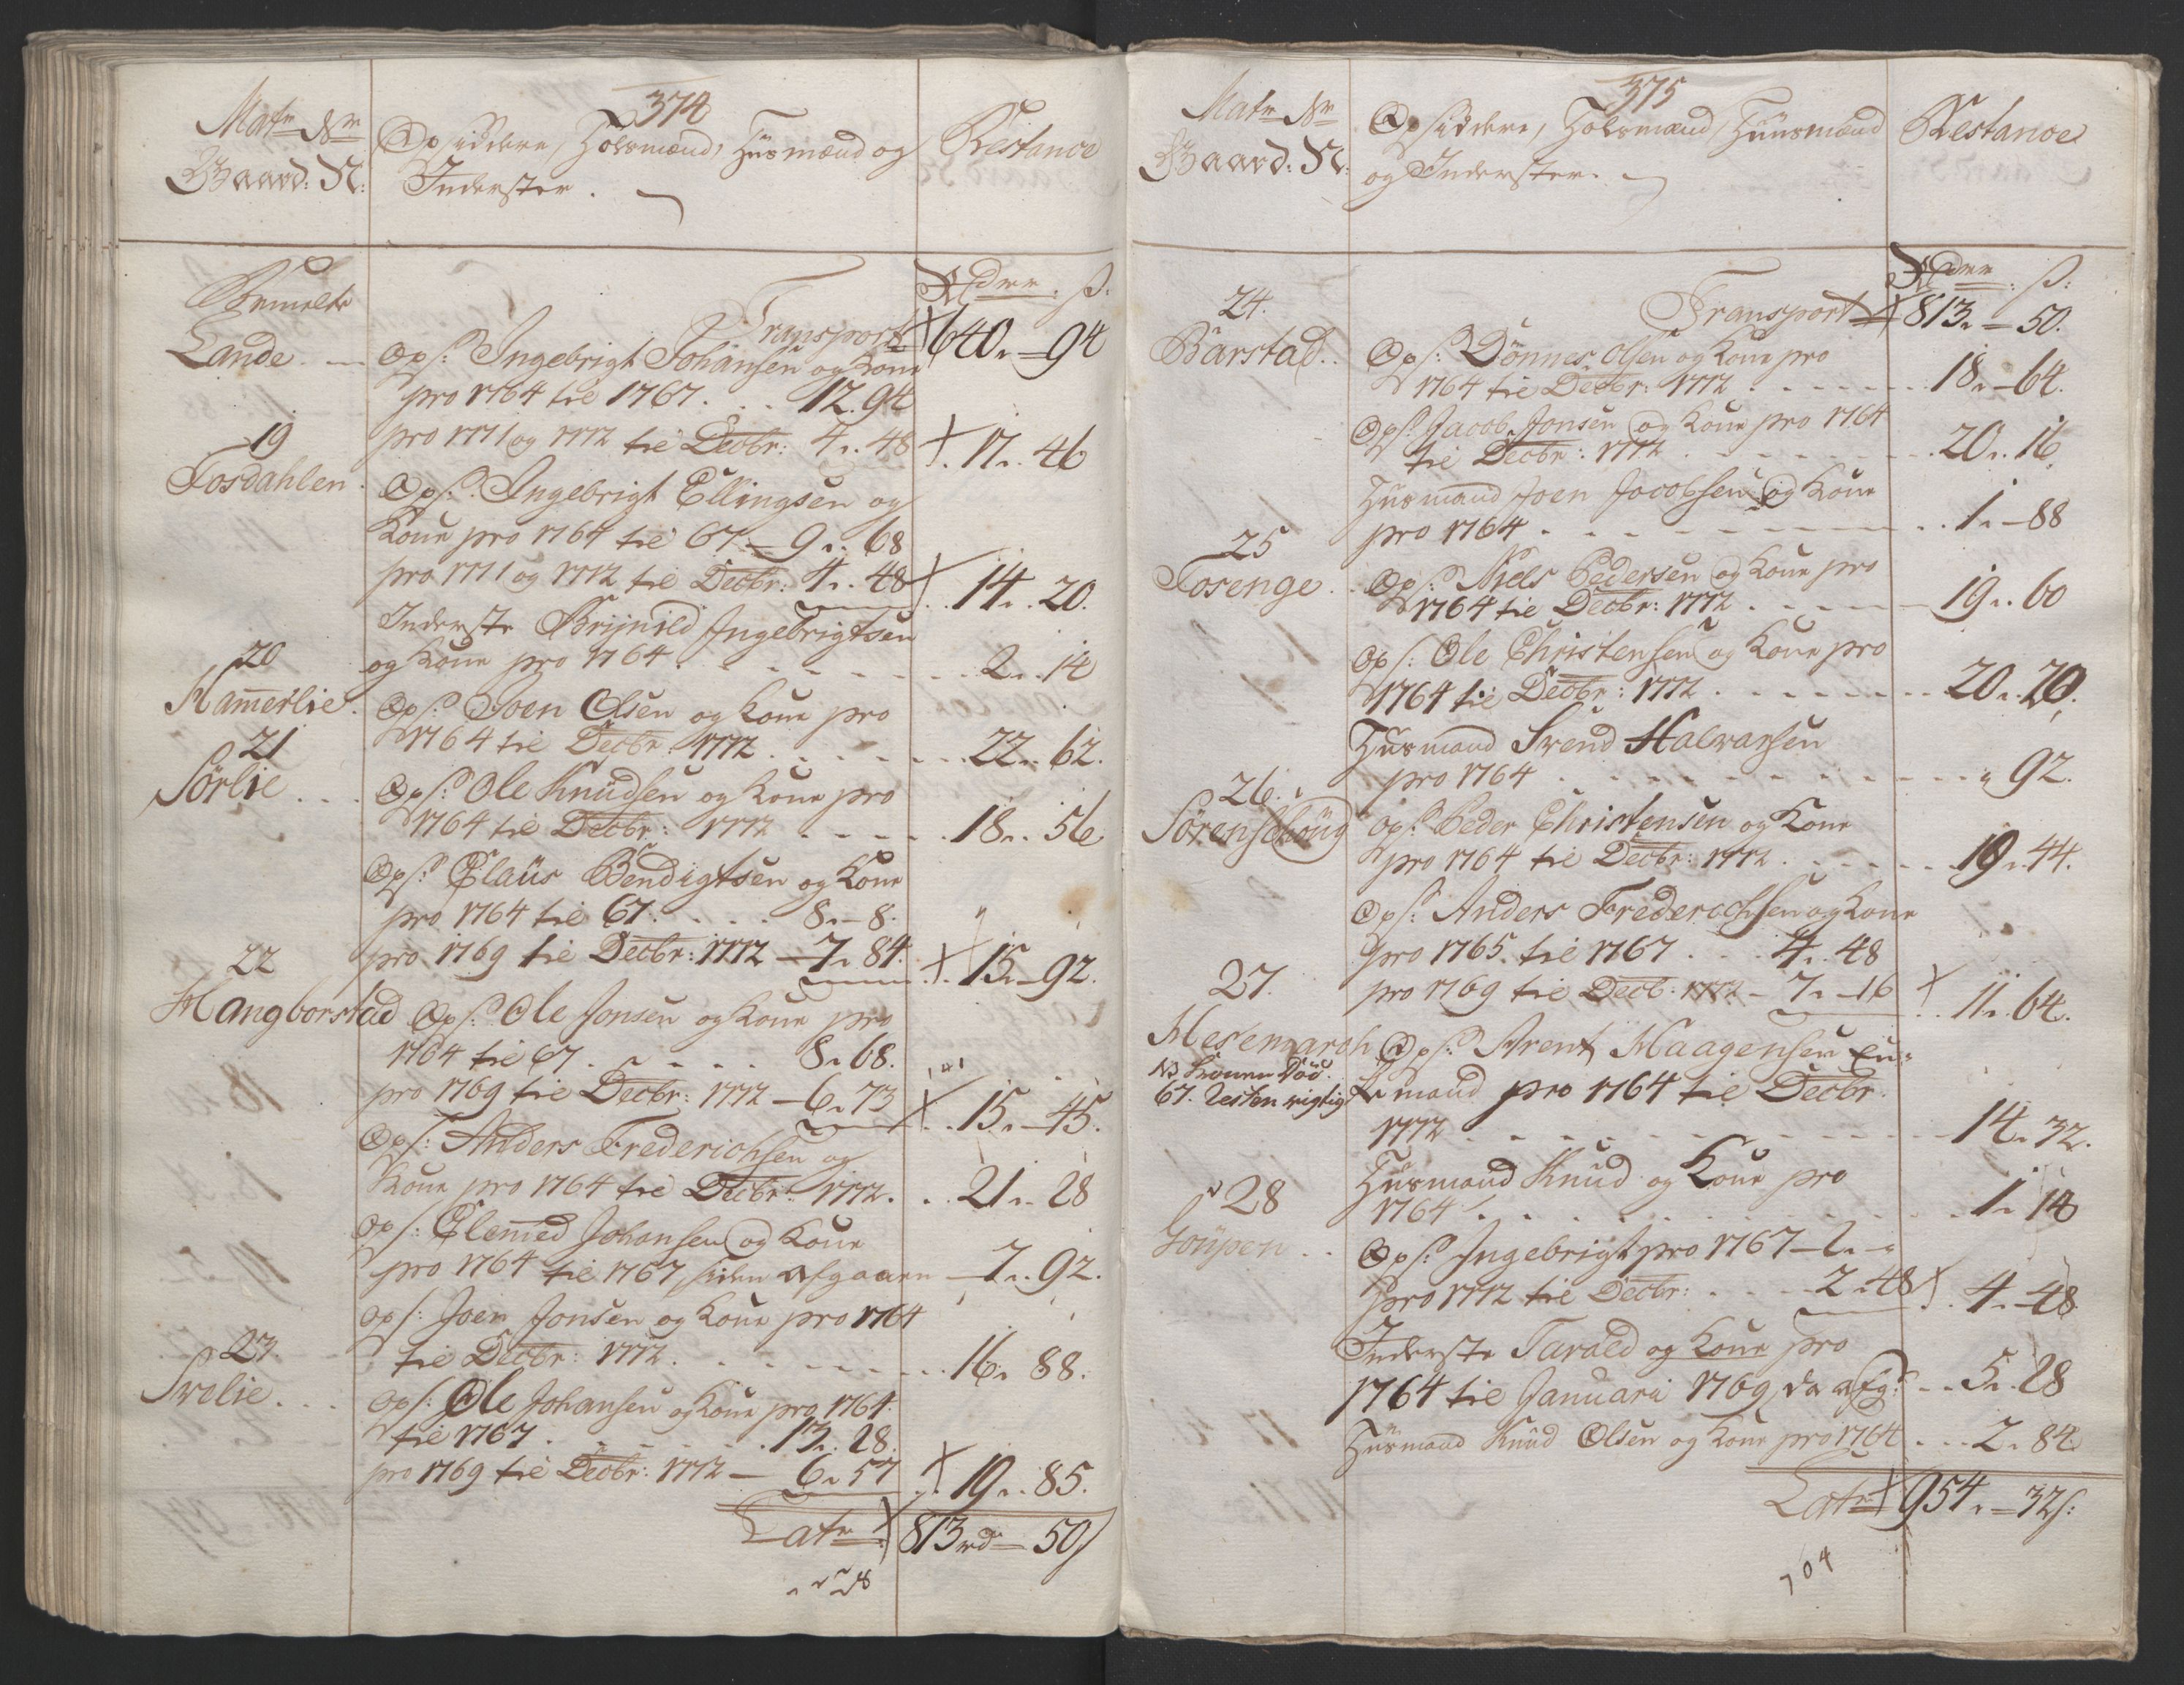 374
Matr Nr
Gaard: N:
Opsiddere, Holsmænd, Husmænd og
Inderster.
Restance
Rdr. ß:
Transport 640 - 94
Bemelte
Lande. Ops: Ingebrigt Johansen og Kone
pro 1764 til 1767. . . 12. 94
pro 1771 og 1772 til Decbr: 4 .. 48 17 .. 46
19
Fosdahlen. Ops: Ingebrigt Ellingsen og
Kone pro 1764 til 67 - 9 .. 68
pro 1771 og 1772 til Decbr: 4 .. 48 14 .. 20.
Inderste Brynild Ingebrigtsen
og Kone pro 1764 . . . 2 .. 14
20
Hamerlie. Ops: Joen Olsen og Kone pro
1764 til Decbr: 1772 . . . 22 .. 62.
21
Sörlie . . . Ops: Ole Knudsen og Kone pro
1764 til Decbr: 1772 . . . 18 .. 56
Ops: Claus Bendigtsen og Kone
pro 1764 til 67. . . . 8 - 8.
pro 1769 til Decbr: 1772 - 7 . 84. 15 - 92.
22
Mangborstad Ops: Ole Jonsen og Kone pro
1764 til 67 . . . 8 . 68.
pro 1769 til Decbr: 1772 - 6 . 73 15 - 45.
Ops: Anders Frederichsen og
Kone pro 1764 til Decbr: 1772. . . 21 .. 28
Ops: Clemed Johansen og Kone
pro 1764 til 1767, siden afgaaen - 7 .. 92.
Ops: Joen Jonsen og Kone pro 1764
til Decbr: 1772 . . . 16 . 88.
23.
Srolie. . . Ops: Ole Johansen og Kone pro 1764.
til 1767 . . . 13 . 28.
pro 1769 til Decbr: 1772 - 6 . 57 19 .. 85.
Latr 813 rd - 50 ß
375
Matr Nr
Gaard: N:
Opsiddere, Holsmænd, Huusmænd
og Inderster.
Restance
Rdr. ß:
Transport 813. - 50.
24.
Barstad. . Ops: Dönnes Olsen og Kone pro
1764 til Decbr: 1772 . . . 18 . - 64.
Ops: Jacob Jonsen og Kone pro 1764
til Decbr: 1772 . . . 20 .. 16.
Husmand Joen Jacobsen og Kone
pro 1764 . . . 1 . - 88
25
Fosenge . . Ops: Niels Pedersen og Kone pro
1764 til Decbr: 1772 . . . 19 .. 60
Ops: Ole Christensen og Kone pro
1764 til Decbr: 1772 . . . 20 .. 20.
Husmand Svend Halvarsen
pro 1764 . . . " 92.
26.
Ops: Peder Christensen og Kone
pro 1764 til Decbr: 1772 . . . 19 . 44.
Ops: Anders Frederochsen og Kone
pro 1765. til 1767 . . . 4 .. 48
27.
pro 1769 til Decb. 1772 - 7 . - 16 11 .. 64.
Mesemarch Ops: Arent Haagensen En-
NB Konen Död.
67. Resten rigtig
kemand pro 1764 til Decbr.
1772 . . . 14 . 32.
Husmand Knud og Kone pro
1764 . . . 1 . 14
28
Ops: Ingebrigt pro 1767 - 2 . - "
pro 1772 til Decbr: . . . 2 . 48 4 . - 48
Inderste Tarald og Kone pro
1764 til Januari 1769, da afg: . . 5 .. 28
Husmand Knud Olsen og Kone pro 1764 . . . 2 . 84.
Latr 954 . - 32 ß:
704